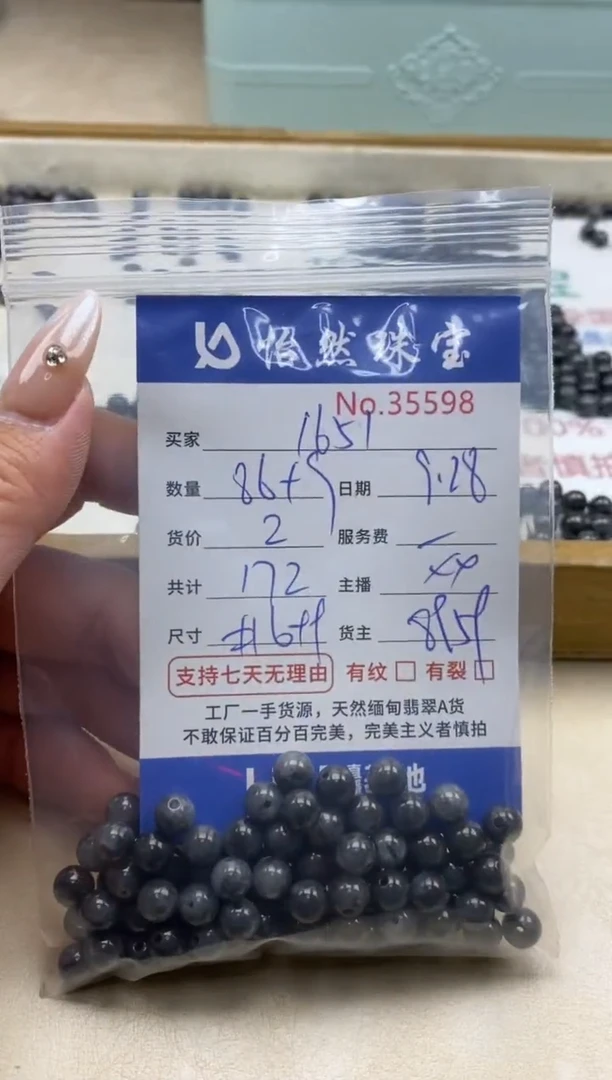 怡然珠宝
No.35598
买家 1651
数量 86+ 日期 9.28
货价 2 服务费
共计 172 主播
尺寸 货主
支持七天无理由 有纹 有裂
工厂一手货源，天然缅甸翡翠A货
不敢保证百分百完美，完美主义者慎拍